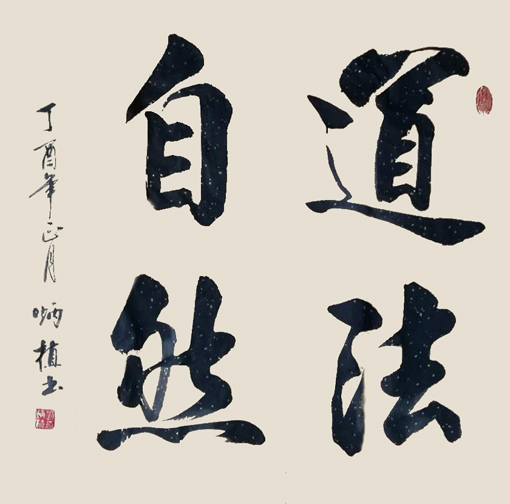 道法
自然
丁酉年正月
炳植书